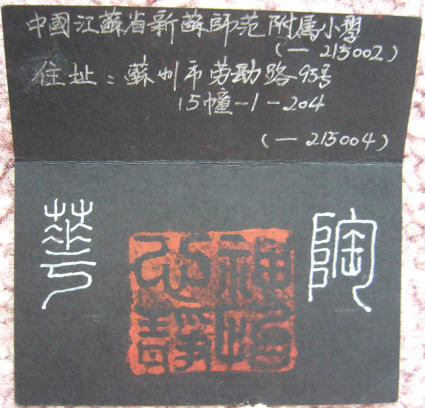 中國江蘇省新蘇師范附属小學
(— 215002)
住址：蘇州市劳動路95号
15幢-1-204
(— 215004)
陶
神
心靜
華